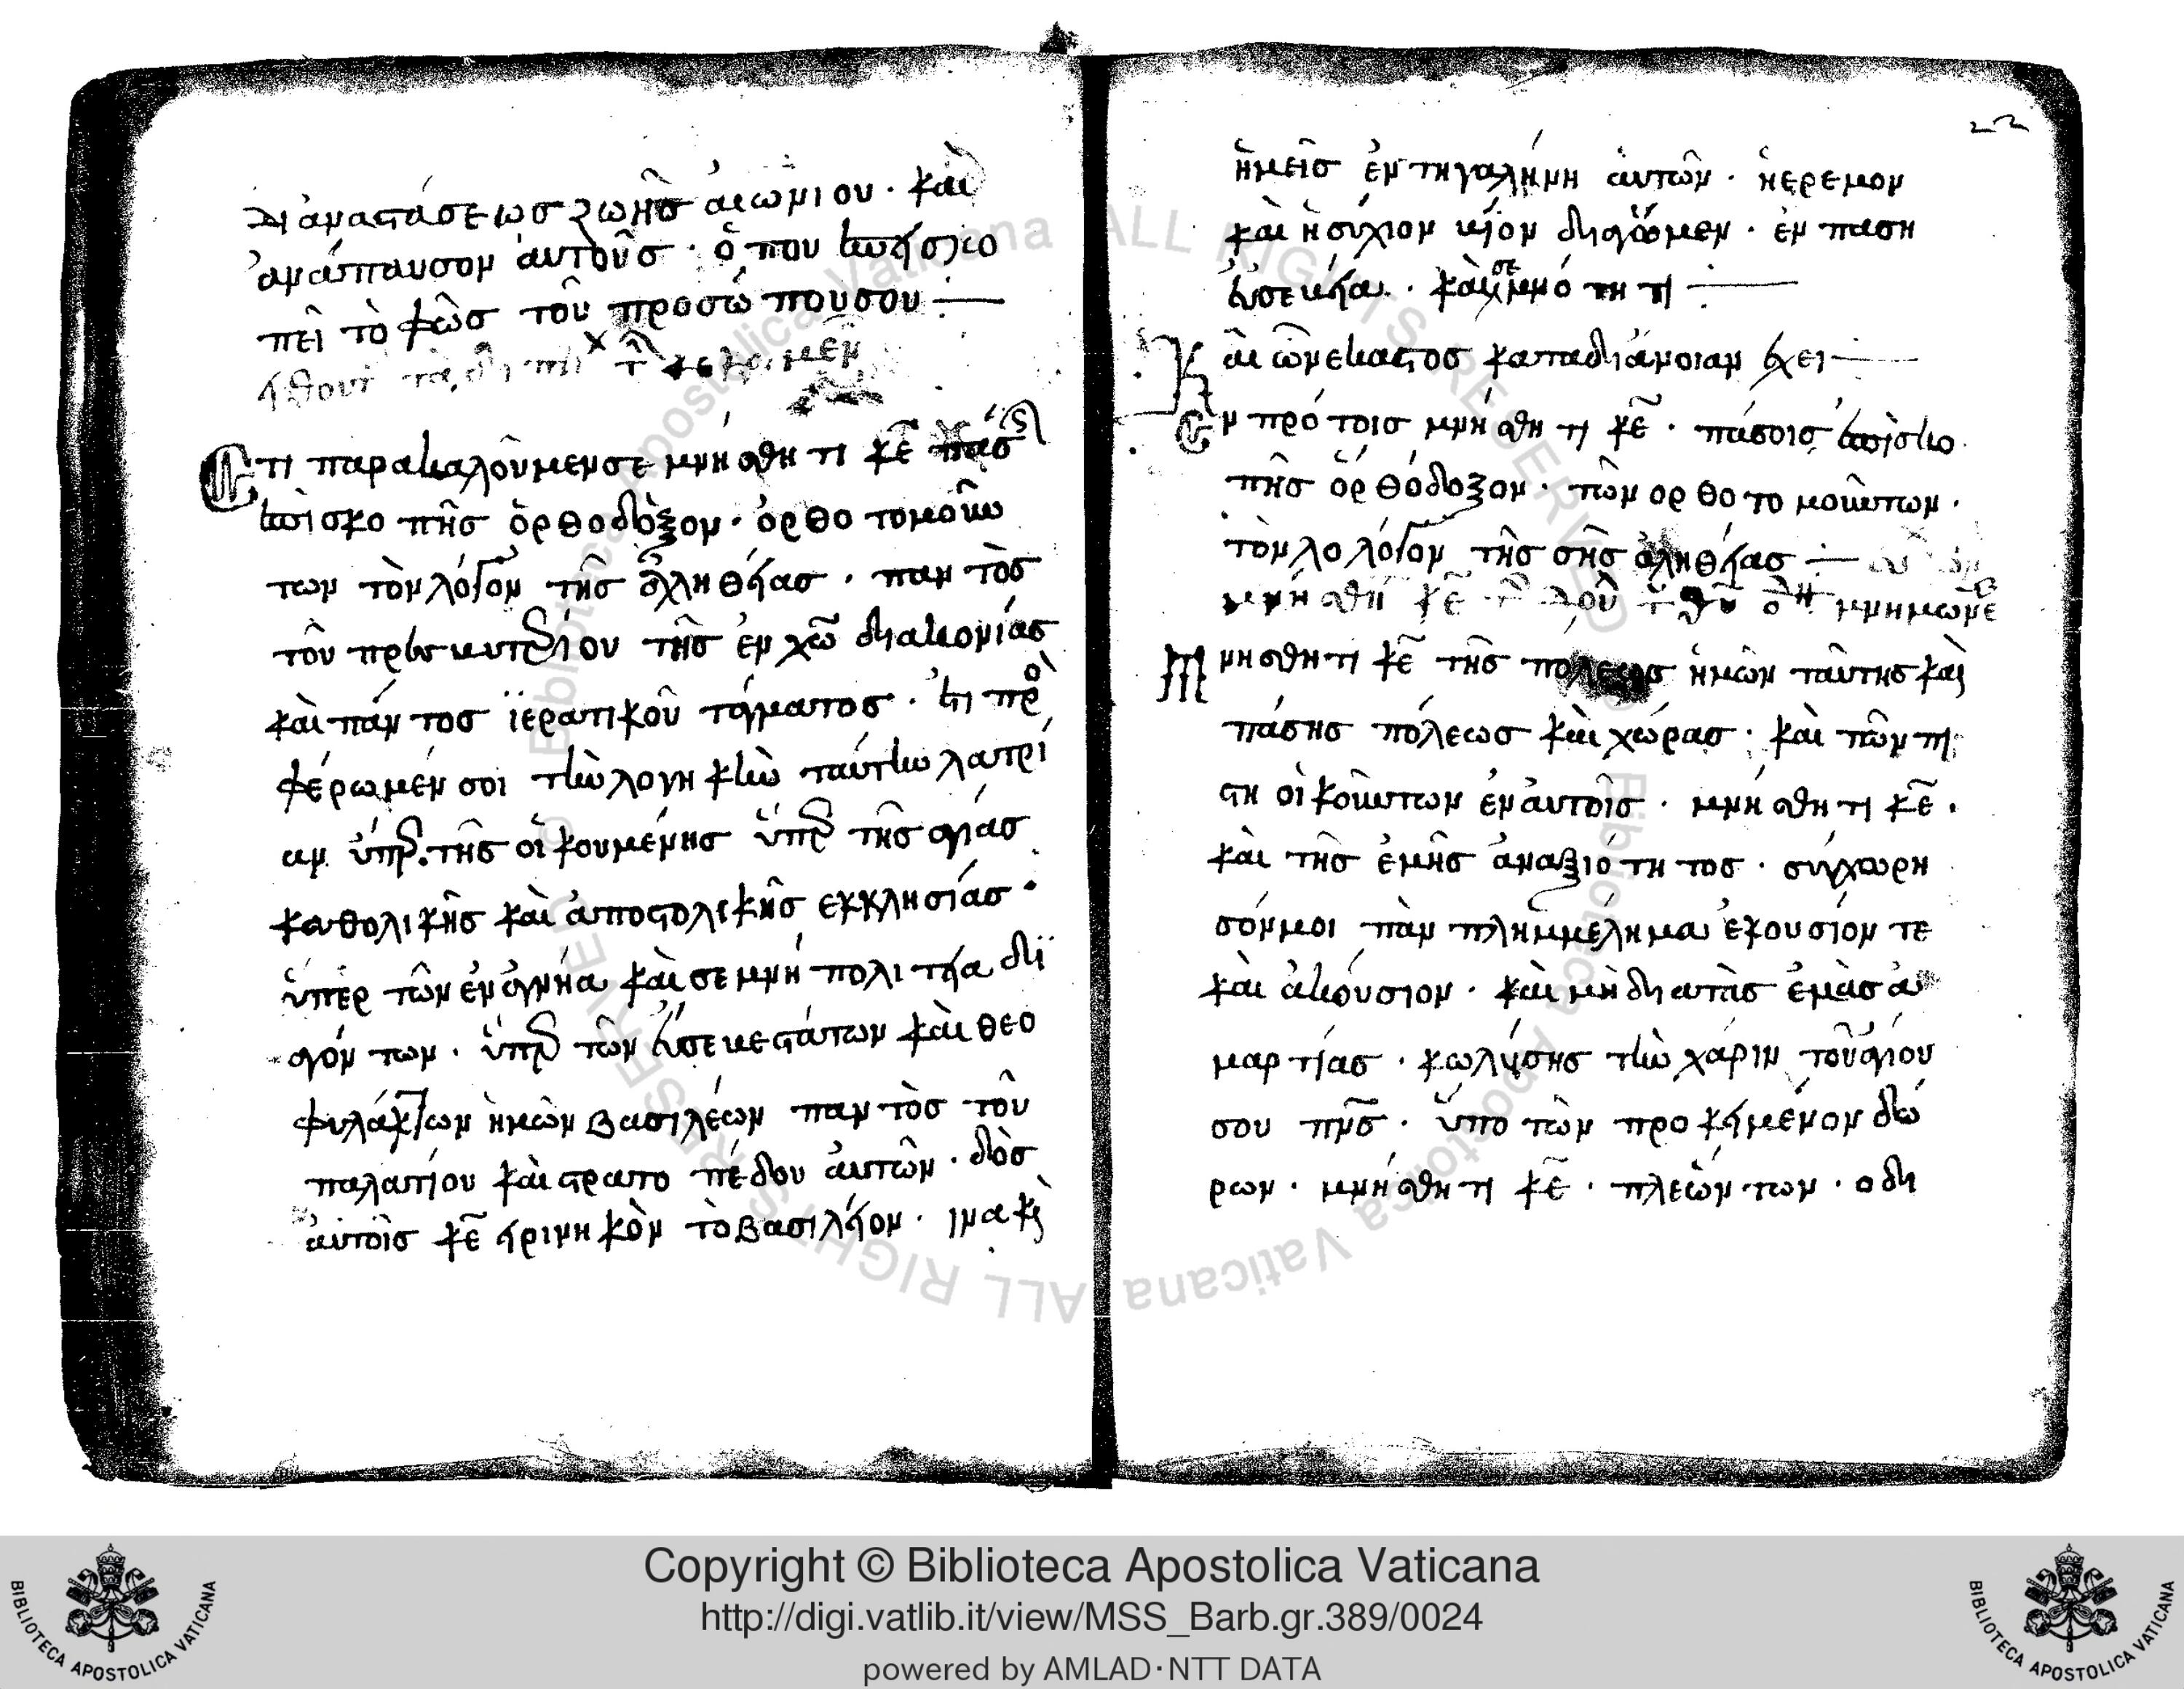 δι ἀναστάσεως ζωῆς αἰωνίου · καὶ
ἀνάπαυσον ἀυτοὺς · ὅπου ἐπήσκο
πεῖ τὸ φῶς τοῦ προσώπουσου
Ετι παρακαλοῦμενσε μνήσθητι κε πάσης
ἐπισκοπῆς ὀρθοδόξον · ὀρθοτομούν
των τὸν λόγον τῆς ἀληθήας · παντὸς
τοῦ πρεσβυτερίου τῆς ἐν χω διακονίας
καὶ πάντος ϊερατικοῦ τάγματος · ἔτι προ
φέρωμέν σοι τὴν λογηκὴν ταύτην λατρί
αν ὑπὲρ τῆς οἰκουμένης ὑπὲρ τῆς αγίας
καθολικῆς καὶ ἀποστολικῆς εκκλησίας ·
ὑπὲρ τῶν ἐν ἁγνήα καὶ σεμνή πολιτήα δϊ
αγόντων · ὑπὲρ τῶν ἐυσεβεστάτων καὶ θεο
φυλάκτων ἡμῶν βασιλέων παντὸς τοῦ
παλατίου καὶ στρατοπέδου ἀυτῶν · δὸς
ἀυτοῖς κε ἠρινηκὸν τὸ βασιλήον · ινα κὶ
22
ἡμεῖς ἐν τη γαλήνη ἀυτῶν · ἡερεμον
καὶ ἡσύχιον βίον διάγομεν · ἐν παση
ἐυσεβήα · καὶ σεμνότητι
Κ αὶ ὧν εκαστος καταδιάνοιαν ἔχει
Εν πρότοις μνήσθητι κε · πάσοις ἐπισκο
πῆς ὀρθόδοξον · τῶν ορθοτομούντων ·
τὸν λολόγον τῆς σῆς ἀληθήας
Μ νησθητι κε τῆς πολεως ἡμῶν ταύτης καὶ
πάσης πόλεως καὶ χώρας · καὶ τῶν πι
στη οἰκούντων ἐν ἀυτοῖς · μνήσθητι κε ·
καὶ τῆς ἐμῆς ἀναξιότητος · συγχωρη
σόνμοι πὰν πλημμέλημα ἑκουσίον τε
καὶ ἀκούσιον · καὶ μὴ δηατὰς ἐμὰς ἁ
μαρτίας · κωλήσης τὴν χάριν τοῦ αγίου
σου πνς · ὑπο τὼν προκήμένον δώ
ρων · μνήσθητι κε · πλεώντων · οδη
Copyright © Biblioteca Apostolica Vaticana
http://digi.vatlib.it/view/MSS_Barb.gr.389/0024
powered by AMLAD·NTT DATA